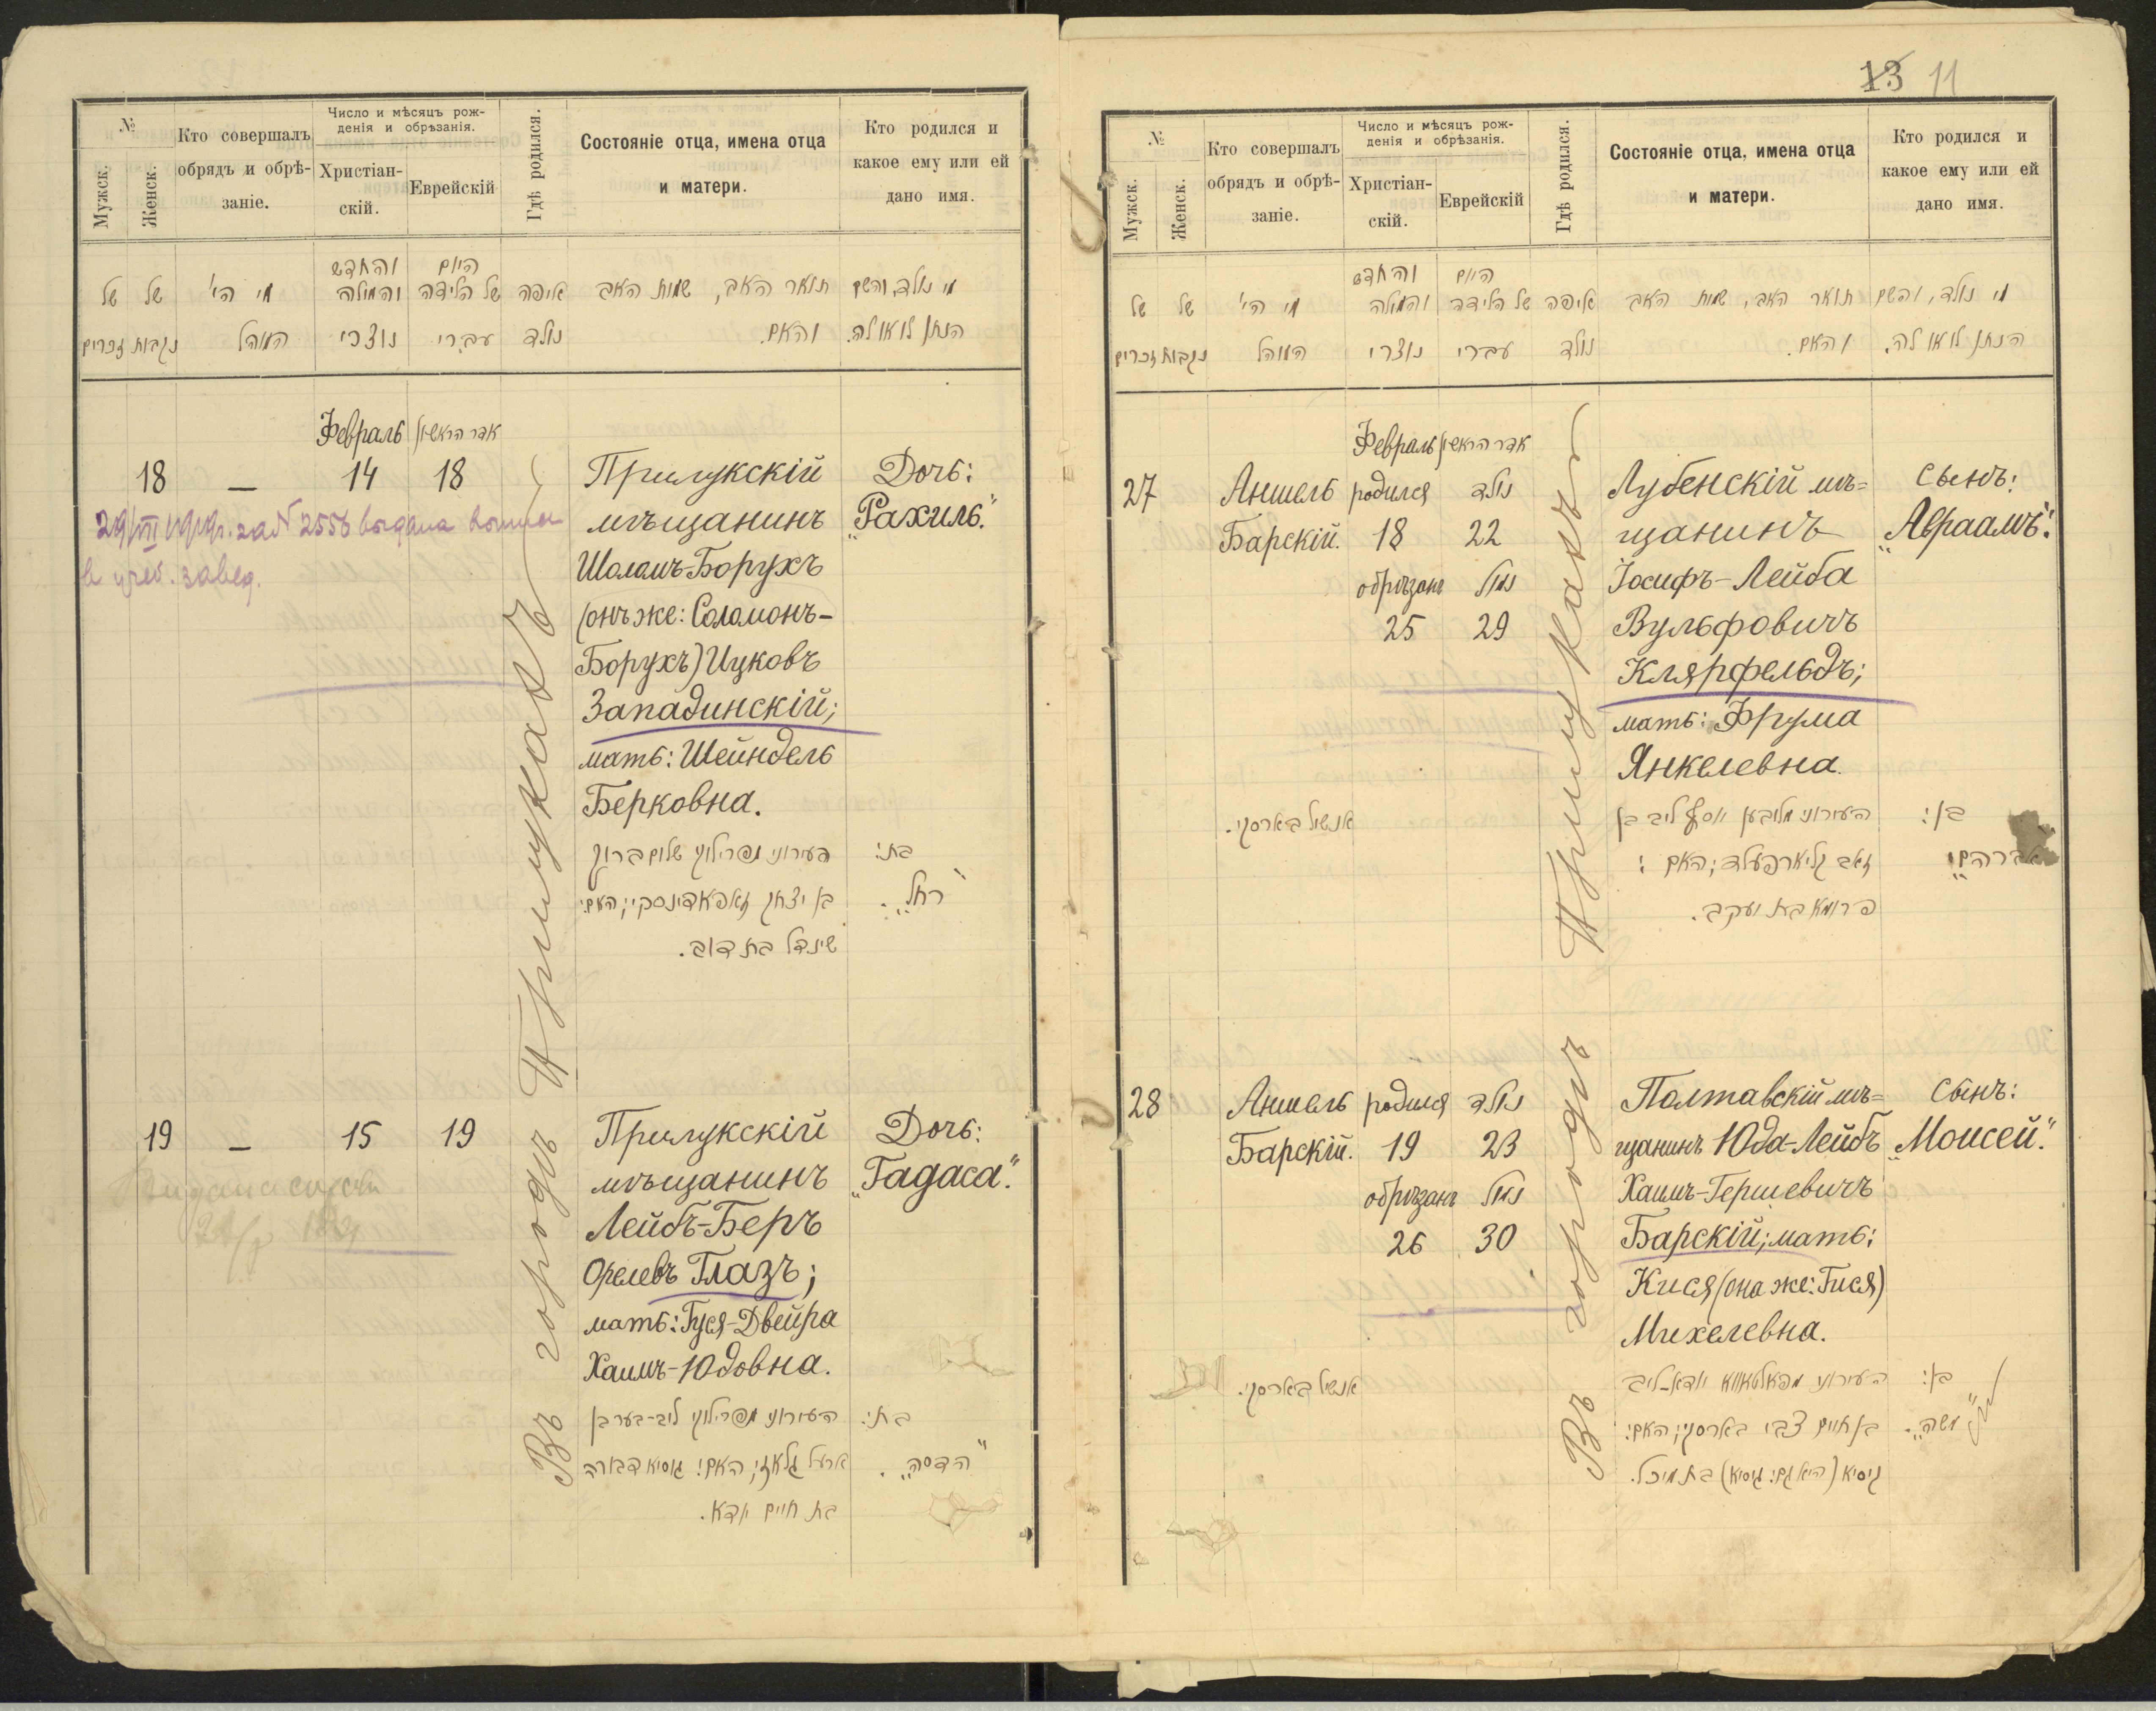 №
Мужск.
Женск.
Кто совершалъ
обрядъ и обрѣ-
заніе.
Число и мѣсяцъ рож-
денія и обрѣзанія.
Христіан-
скій.
Еврейскій
Гдѣ родился.
Состояніе отца, имена отца
и матери.
Кто родился и
какое ему или ей
дано имя.
היום והחדש
מי נולד, והשם תואר האב, שמות האב איפה של הלידה והמילה מי הי' של של
הנתן לו או לה. והאם. נולד עברי נוצרי המוהל נקבות זכרים
Февраль אדר הראשון
18 — 14 18
Прилукскій
мѣщанинъ
Шоломъ-Борухъ
(онъ же: Соломонъ-
Борухъ) Ицковъ
Западинскій;
мать: Шейндель
Берковна.
Дочь:
„Рахиль".
29/VII 1919г. за № 2556 выдана
в учеб. завед.
העירוני מפרילוקי שלום ברוך
בן יצחק זאפאדינסקי; האם:
שינדל בת דוב.
בת:
"רחל".
Въ городѣ Прилукахъ
19 — 15 19
Прилукскій
мѣщанинъ
Лейбъ-Беръ
Орелевъ Глазъ;
мать: Гуся-Двейра
Хаимъ-Юдовна.
Дочь:
„Гадаса".
העירוני מפרילוקי ליב-בער בן
ארעל גלאז; האם: גוסיא דבורה
בת חיים יודא.
בת:
"הדסה".
13 11
№
Мужск.
Женск.
Кто совершалъ
обрядъ и обрѣ-
заніе.
Число и мѣсяцъ рож-
денія и обрѣзанія.
Христіан-
скій.
Еврейскій
Гдѣ родился.
Состояніе отца, имена отца
и матери.
Кто родился и
какое ему или ей
дано имя.
היום והחדש
מי נולד, והשם תואר האב, שמות האב איפה של הלידה והמילה מי הי' של של
הנתן לו או לה. והאם. נולד עברי נוצרי המוהל נקבות זכרים
Февраль אדר הראשון
27 Аншель родился נולד
Барскій. 18 22
обрѣзанъ נמול
25 29
Лубенскій мѣ=
щанинъ
Іосифъ-Лейба
Вульфовичъ
Клярфельдъ;
мать: Фрума
Янкелевна.
Сынъ:
„Авраамъ".
אנשיל בארסקי.
העירוני מלובען יוסף ליב בן
זאב קליארפעלד; האם:
פרומא בת יעקב.
בן:
"אברהם"
Въ городѣ Прилукахъ
28 Аншель родился נולד
Барскій. 19 23
обрѣзанъ נמול
26 30
Полтавскій мѣ=
щанинъ Юда-Лейбъ
Хаимъ-Гершевичъ
Барскій; мать:
Кися (она же: Гися)
Михелевна.
Сынъ:
„Моисей".
אנשיל בארסקי.
העירוני מפאלטאווא יודא-ליב
בן חיים צבי בארסקי; האם:
קיסיא (היא גם: גיסיא) בת מיכל.
בן:
"משה".